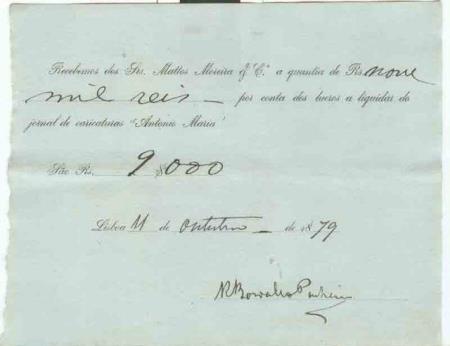 Recebemos dos Srs. Mattos Moreira & C.ª a quantia de Rs. nove
mil reis — por conta dos lucros a liquidar do
jornal de caricaturas "Antonio Maria"
São Rs. 9$000
Lisboa 11 de Outubro — de 1879
R Bordallo Pinheiro